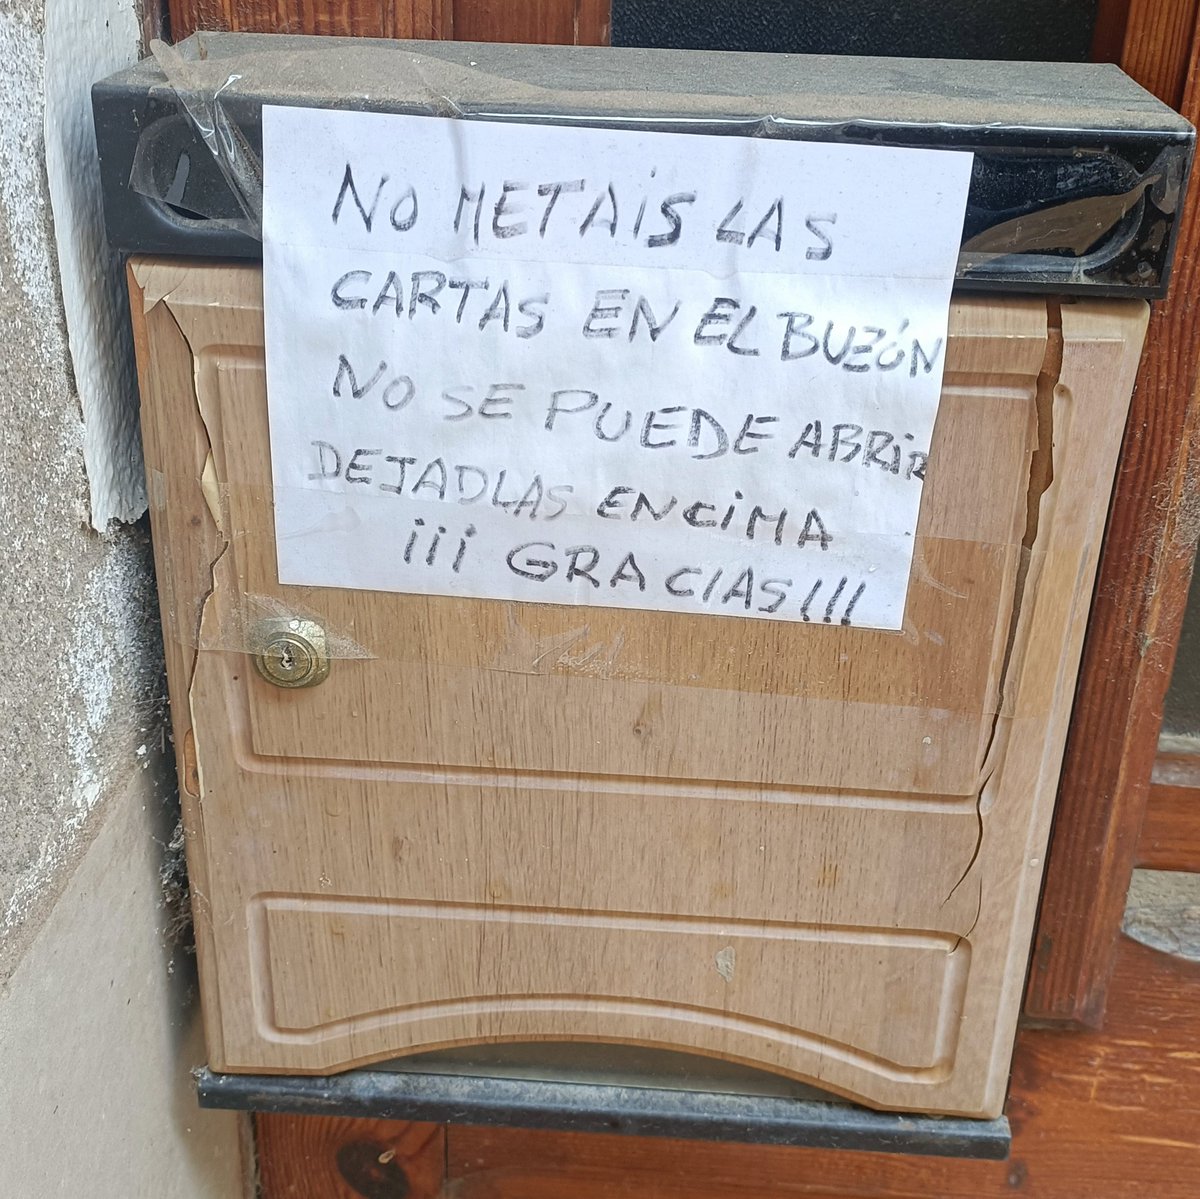 NO METAIS LAS
CARTAS EN EL BUZÓN
NO SE PUEDE ABRIR
DEJADLAS ENCIMA
¡¡¡ GRACIAS!!!